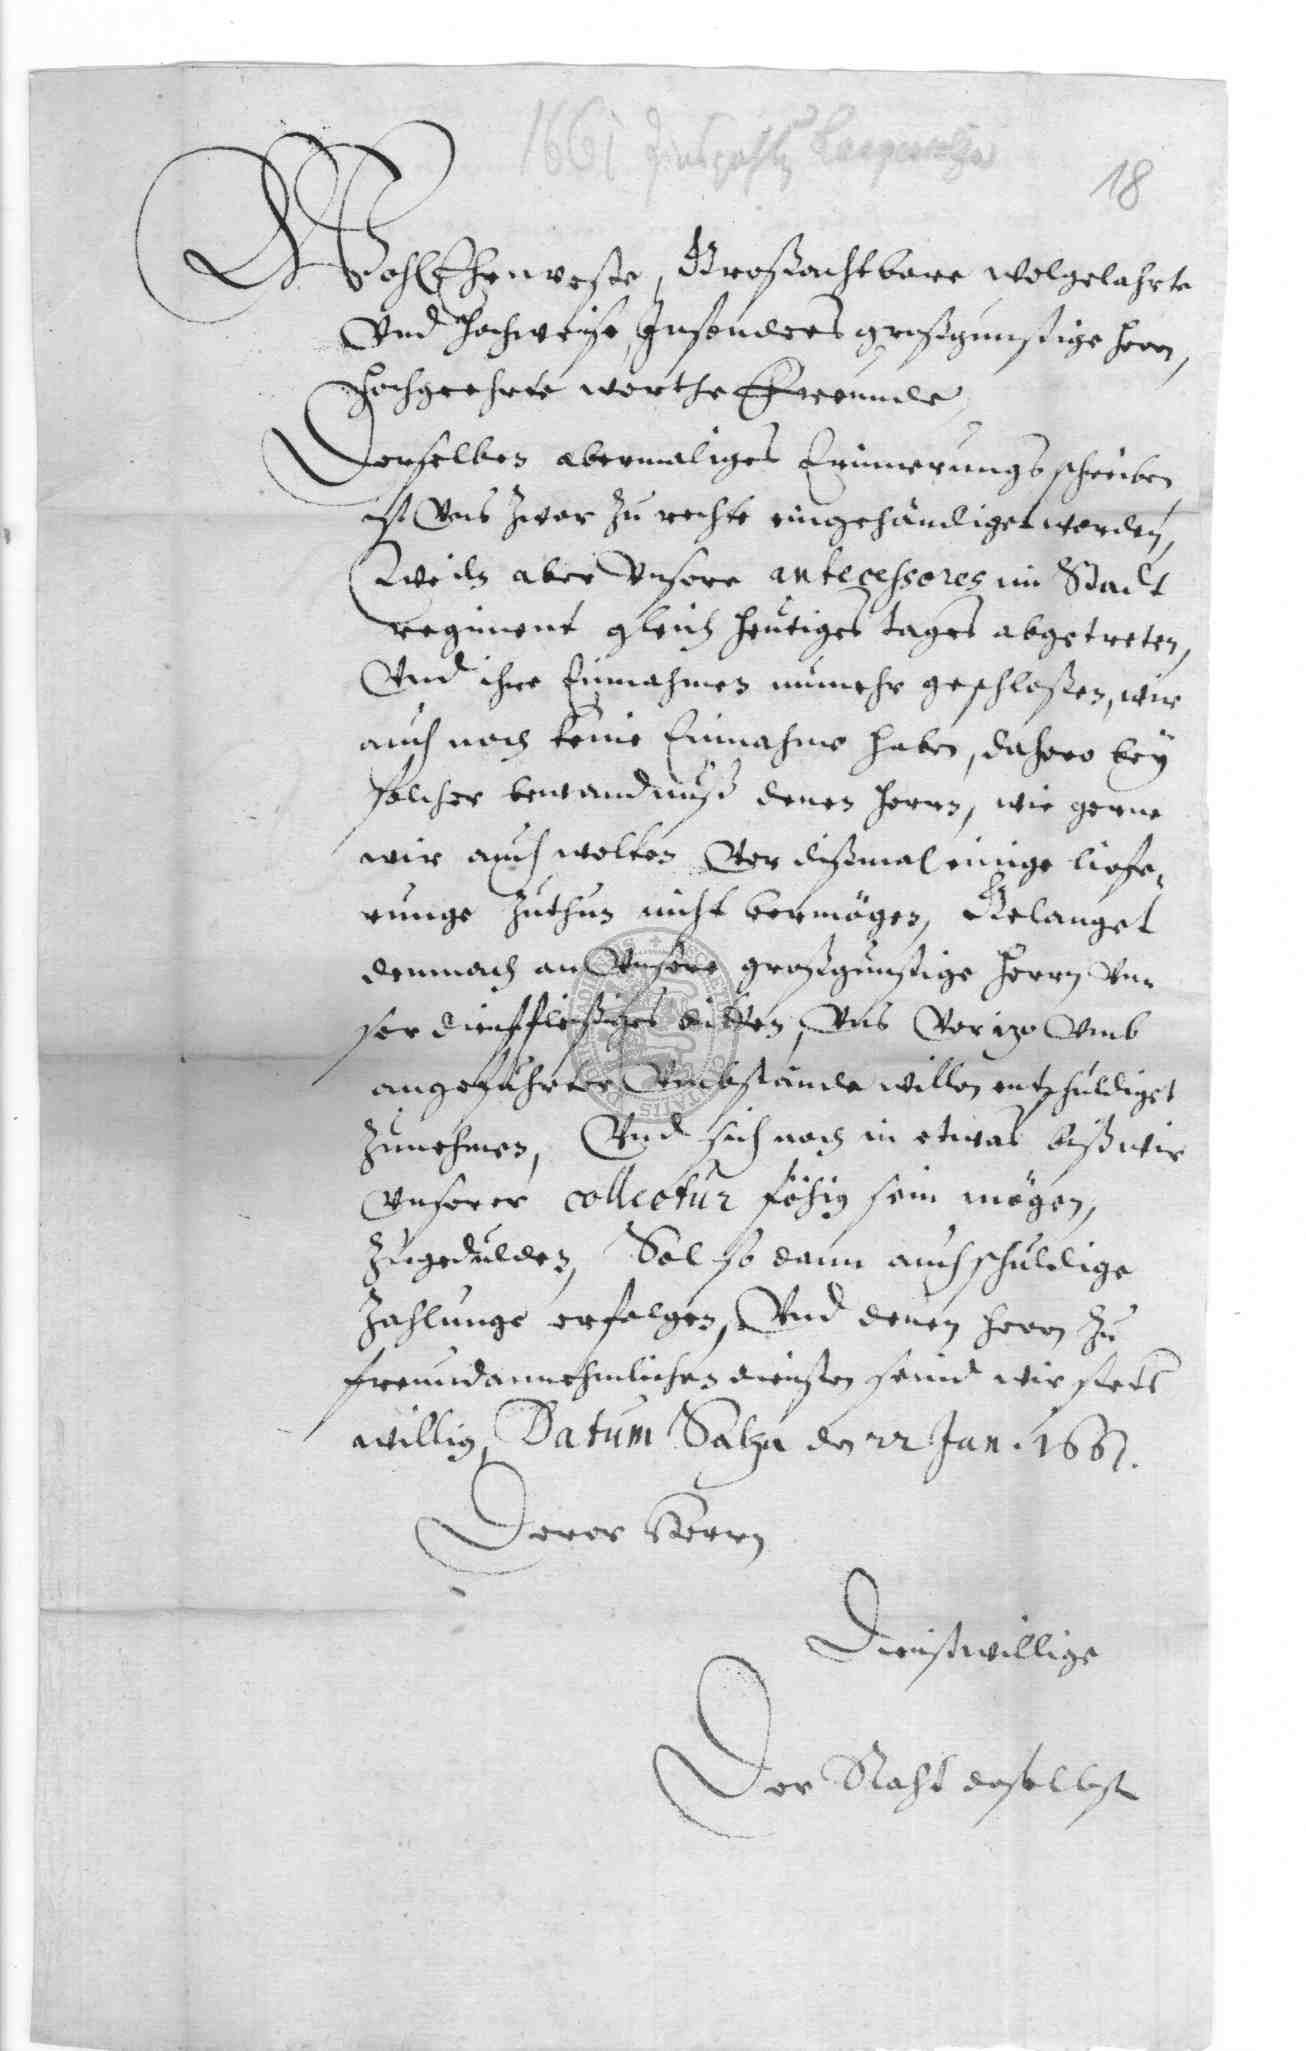 1661 Langensalza
18
WohlEhrenveste, Großachtbare wolgelahrte
Vnd Hochweise, Insonders großgunstige Herrn,
Hochgeehrte werthe Freunde,
Derselben abermaliges Erinnerungsschreiben
ist Vns zwar zu rechte eingehändiget worden,
Weiln aber Vnsere antecessores im Stadt
regiment gleich heutiges tages abgetreten,
Vnd ihre Einnahmen nunmehr geschloßen, wir
auch noch keine Einnahme haben, dahero bey
solcher bewandnuß denen Herrn, wie gerne
wir auch wolten Vor dißmal einige liefe-
runge zuthun nicht vermögen, Gelanget
demnach an Vnsere großgünstige Herrn Vn-
ser dienstfleißiges bitten, Vns Vor izo Vmb
angeführter Vmbstände willen entschuldiget
zunehmen, Vnd sich noch in etwas biß wir
Vnserer collectur fähig sein mögen,
zugedulden, Sol so dann auch schuldige
Zahlunge erfolgen, Vnd denen Herrn zu
freundannehmlichen diensten seind wir stets
willig, Datum Salza den 22 Jan. 1661.
Derer Herrn
Dienstwillige
Der Raht daselbst